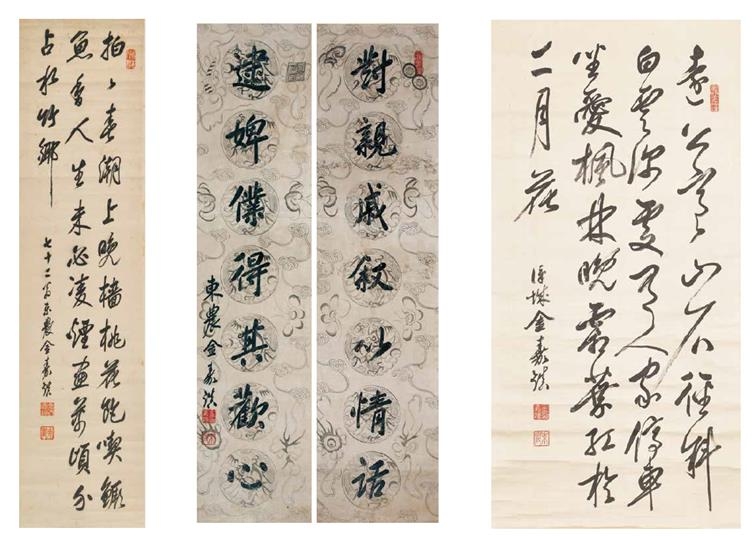 拍〻春潮上晚檣桃花飽喫鱖
魚香人生未必凌煙畫萬頃分
占水竹鄉
七十二翁東農金嘉鎮
對親戚叙以情話
逮婢僕得其歡心
東農金嘉鎮
遠上寒山石徑斜
白雲深處有人家停車
坐愛楓林晚霜葉紅於
二月花
金嘉鎮